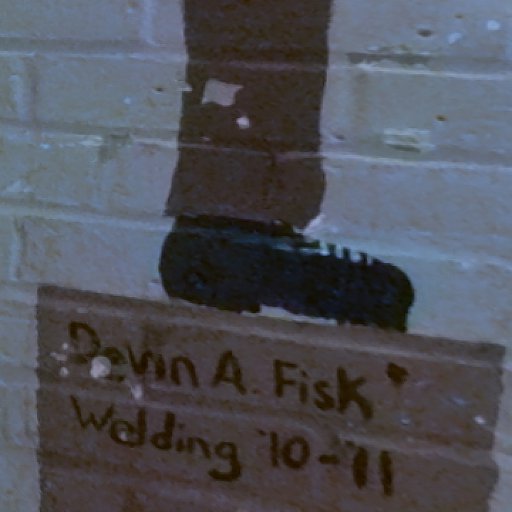 Devin A. Fisk
Welding '10-'11